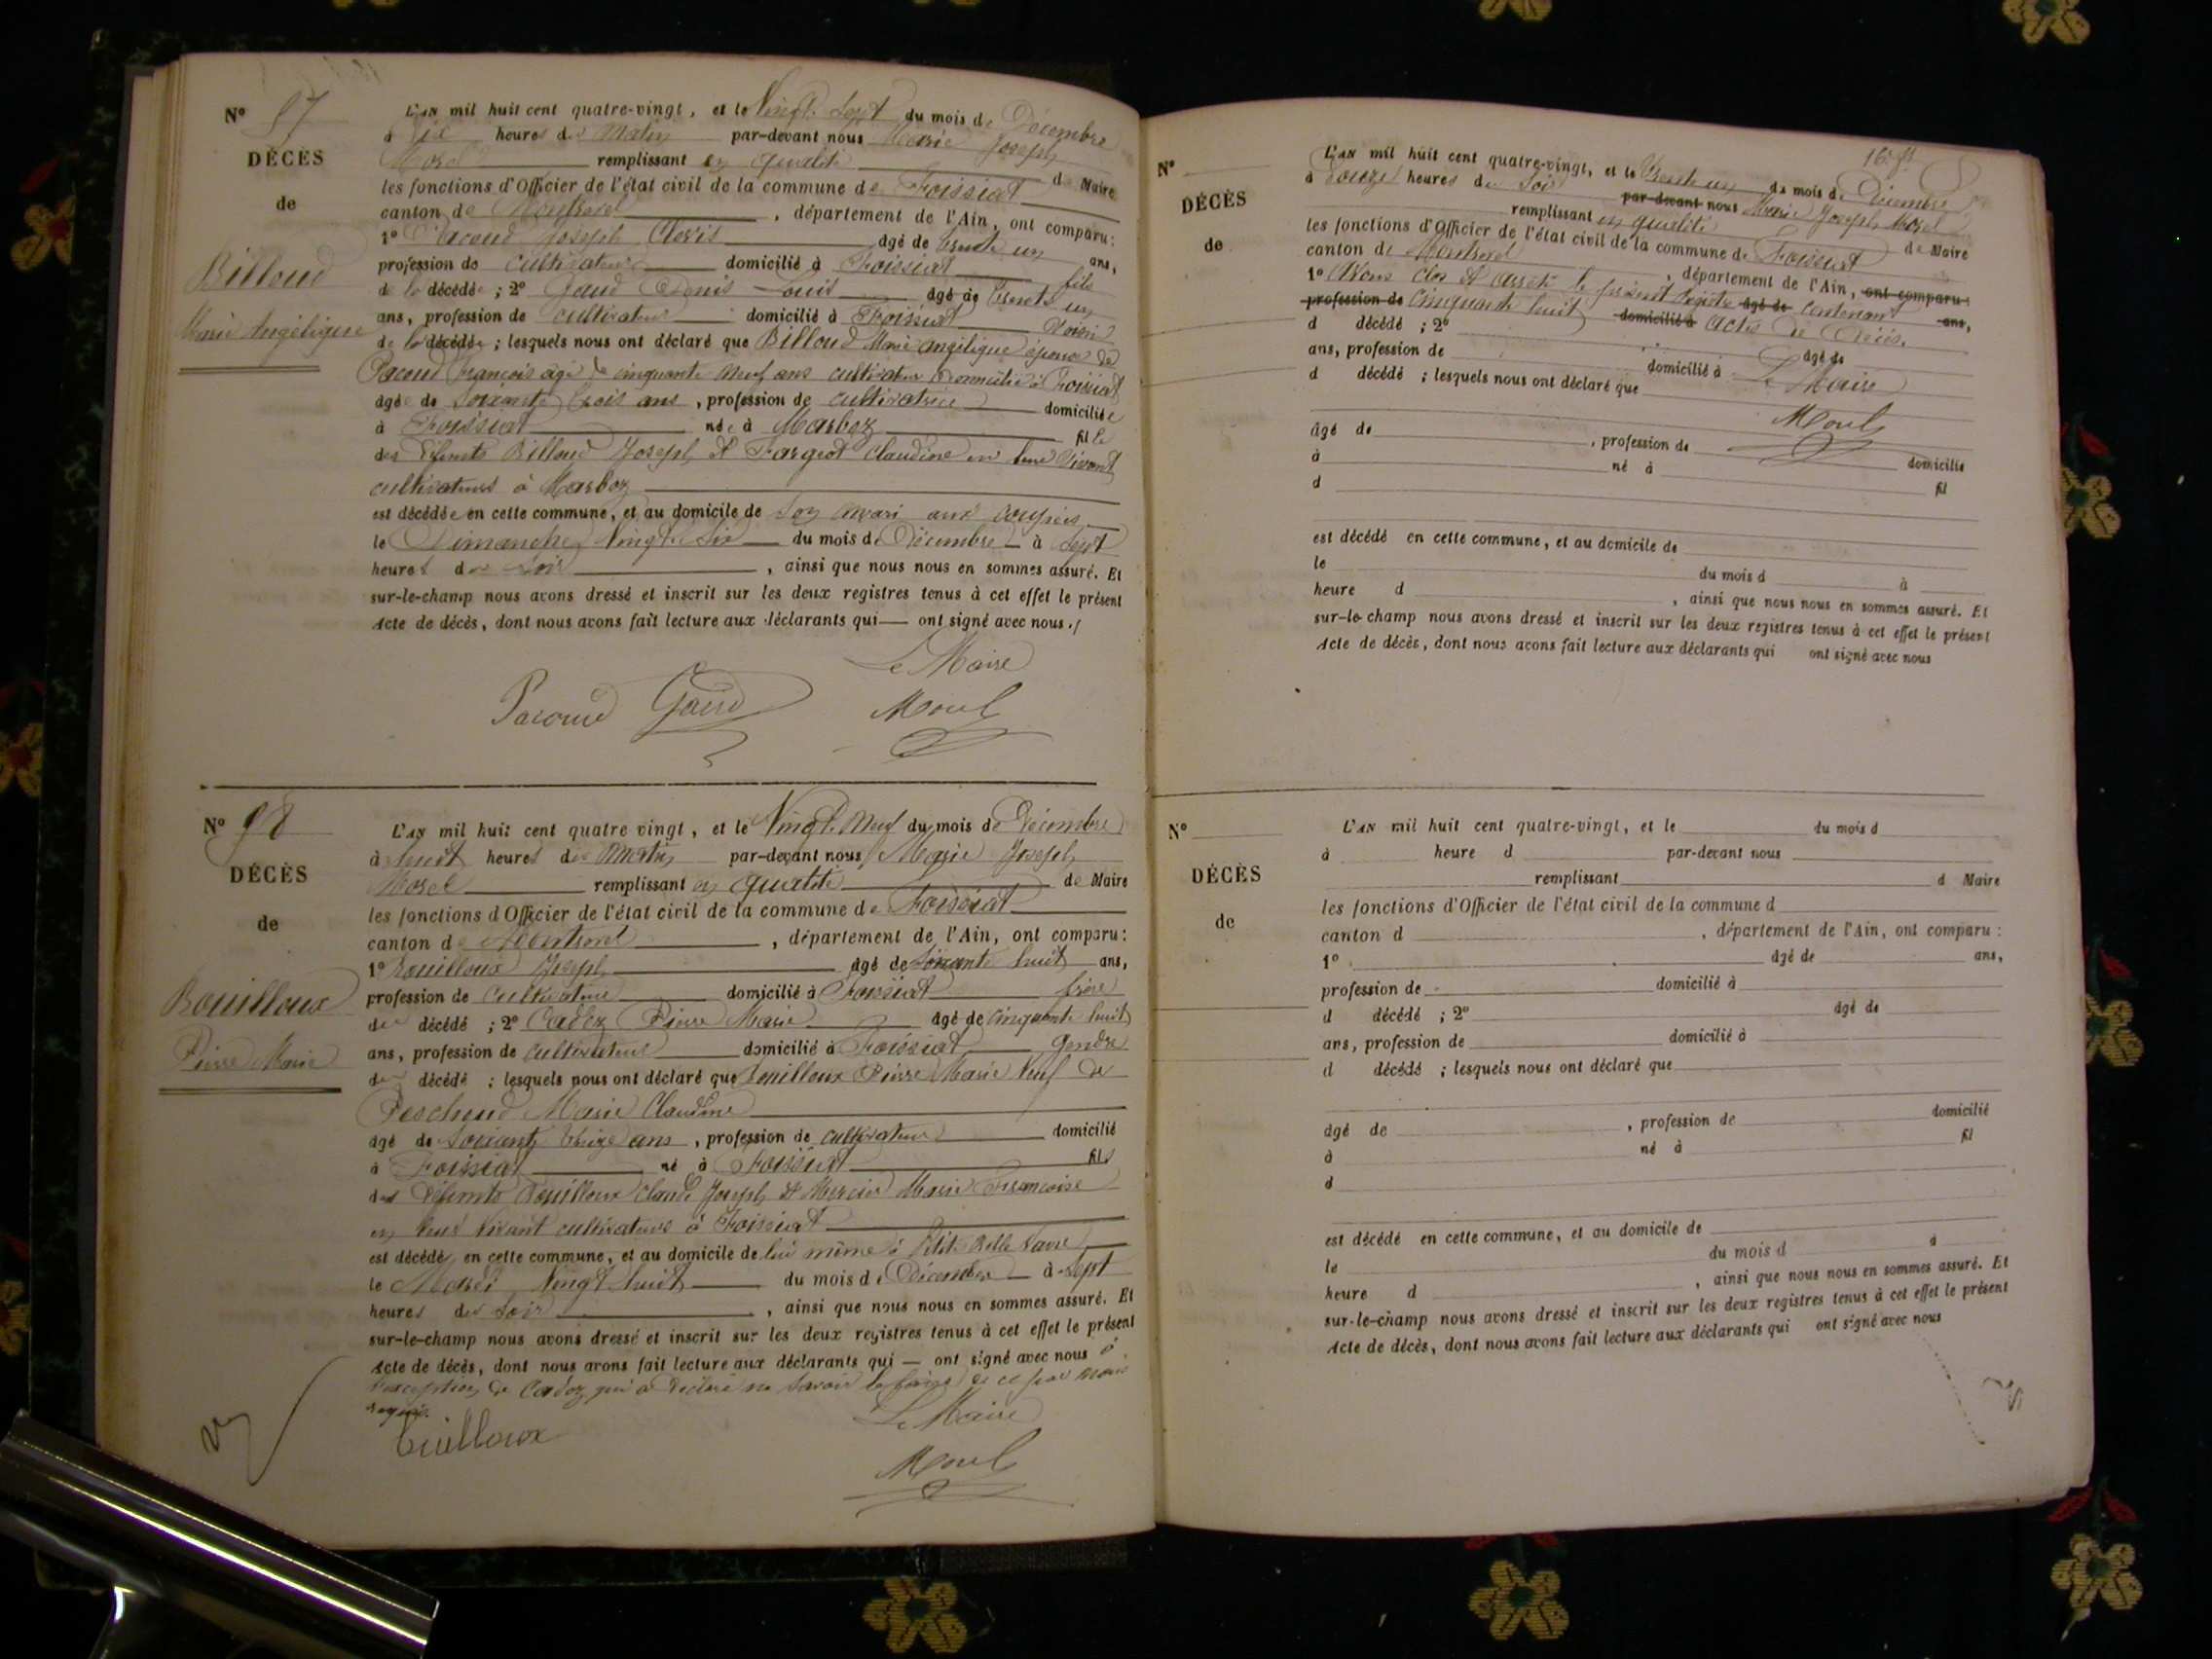 Nº 57
DÉCÈS
de
Billoud
Marie Angélique
L'AN mil huit cent quatre-vingt, et le Vingt Sept du mois de Décembre
à dix heures du Matin par-devant nous Marie Joseph
Morel remplissant en qualité de Maire
les fonctions d'Officier de l'état civil de la commune de Foissiat
canton de Montrevel, département de l'Ain, ont comparu:
1º Pacoud Joseph Clovis âgé de trente un ans,
profession de cultivateur domicilié à Foissiat fils
de la décédée; 2º Gaud Denis Louis âgé de trente un
ans, profession de cultivateur domicilié à Foissiat voisin
de la décédée; lesquels nous ont déclaré que Billoud Marie angélique épouse de
Pacoud François âgé de cinquante neuf ans cultivateur domicilié à Foissiat
âgée de Soixante trois ans, profession de cultivatrice domiciliée
à Foissiat née à Marboz fille
des défunts Billoud Joseph et Fargeot Claudine en leur vivant
cultivateurs à Marboz
est décédée en cette commune, et au domicile de son mari aux
le Dimanche Vingt Six du mois de Décembre à Sept
heures du soir, ainsi que nous nous en sommes assuré. Et
sur-le-champ nous avons dressé et inscrit sur les deux registres tenus à cet effet le présent
Acte de décès, dont nous avons fait lecture aux déclarants qui — ont signé avec nous./
Le Maire
Pacoud Gaud Morel
Nº 58
DÉCÈS
de
Bouilloux
Pierre Marie
L'AN mil huit cent quatre vingt, et le Vingt Neuf du mois de Décembre
à huit heures du Matin par-devant nous Marie Joseph
Morel remplissant en qualité de Maire
les fonctions d'Officier de l'état civil de la commune de Foissiat
canton de Montrevel, département de l'Ain, ont comparu:
1º Bouilloux Joseph âgé de Soixante huit ans,
profession de cultivateur domicilié à Foissiat frère
du décédé; 2º Cadoz Pierre Marie âgé de cinquante huit
ans, profession de cultivateur domicilié à Foissiat gendre
du décédé; lesquels nous ont déclaré que Bouilloux Pierre Marie Veuf de
Peschoud Marie Claudine
âgé de Soixante treize ans, profession de cultivateur domicilié
à Foissiat né à Foissiat fils
des défunts Bouilloux Claude Joseph et Mercier Marie Françoise
en leur vivant cultivateurs à Foissiat
est décédé en cette commune, et au domicile de lui même à Petite
le Mardi Vingt huit du mois de Décembre à Sept
heures du soir, ainsi que nous nous en sommes assuré. Et
sur-le-champ nous avons dressé et inscrit sur les deux registres tenus à cet effet le présent
Acte de décès, dont nous avons fait lecture aux déclarants qui — ont signé avec nous à
l'exception de Cadoz qui a déclaré ne savoir le faire de ce par nous
requis.
Le Maire
Morel
Nº
DÉCÈS
de
L'AN mil huit cent quatre-vingt, et le Trente un du mois de Décembre
à douze heures du Soir par-devant nous Marie Joseph Morel
remplissant en qualité de Maire
les fonctions d'Officier de l'état civil de la commune de Foissiat
canton de Montrevel, département de l'Ain, ont comparu:
1º Avons clos et arrêté le présent Registre âgé de contenant ans,
profession de cinquante huit domicilié à actes de Décès.
d décédé; 2º âgé de
ans, profession de domicilié à Le Maire
d décédé; lesquels nous ont déclaré que
Morel
âgé de, profession de domicilié
à né à fil
d
est décédé en cette commune, et au domicile de
le du mois d à
heure d, ainsi que nous nous en sommes assuré. Et
sur-le-champ nous avons dressé et inscrit sur les deux registres tenus à cet effet le présent
Acte de décès, dont nous avons fait lecture aux déclarants qui ont signé avec nous
Nº
DÉCÈS
de
L'AN mil huit cent quatre-vingt, et le du mois d
à heure d par-devant nous
remplissant d Maire
les fonctions d'Officier de l'état civil de la commune d
canton d, département de l'Ain, ont comparu:
1º âgé de ans,
profession de domicilié à
d décédé; 2º âgé de
ans, profession de domicilié à
d décédé; lesquels nous ont déclaré que
âgé de, profession de domicilié
à né à fil
d
est décédé en cette commune, et au domicile de
le du mois d à
heure d, ainsi que nous nous en sommes assuré. Et
sur-le-champ nous avons dressé et inscrit sur les deux registres tenus à cet effet le présent
Acte de décès, dont nous avons fait lecture aux déclarants qui ont signé avec nous